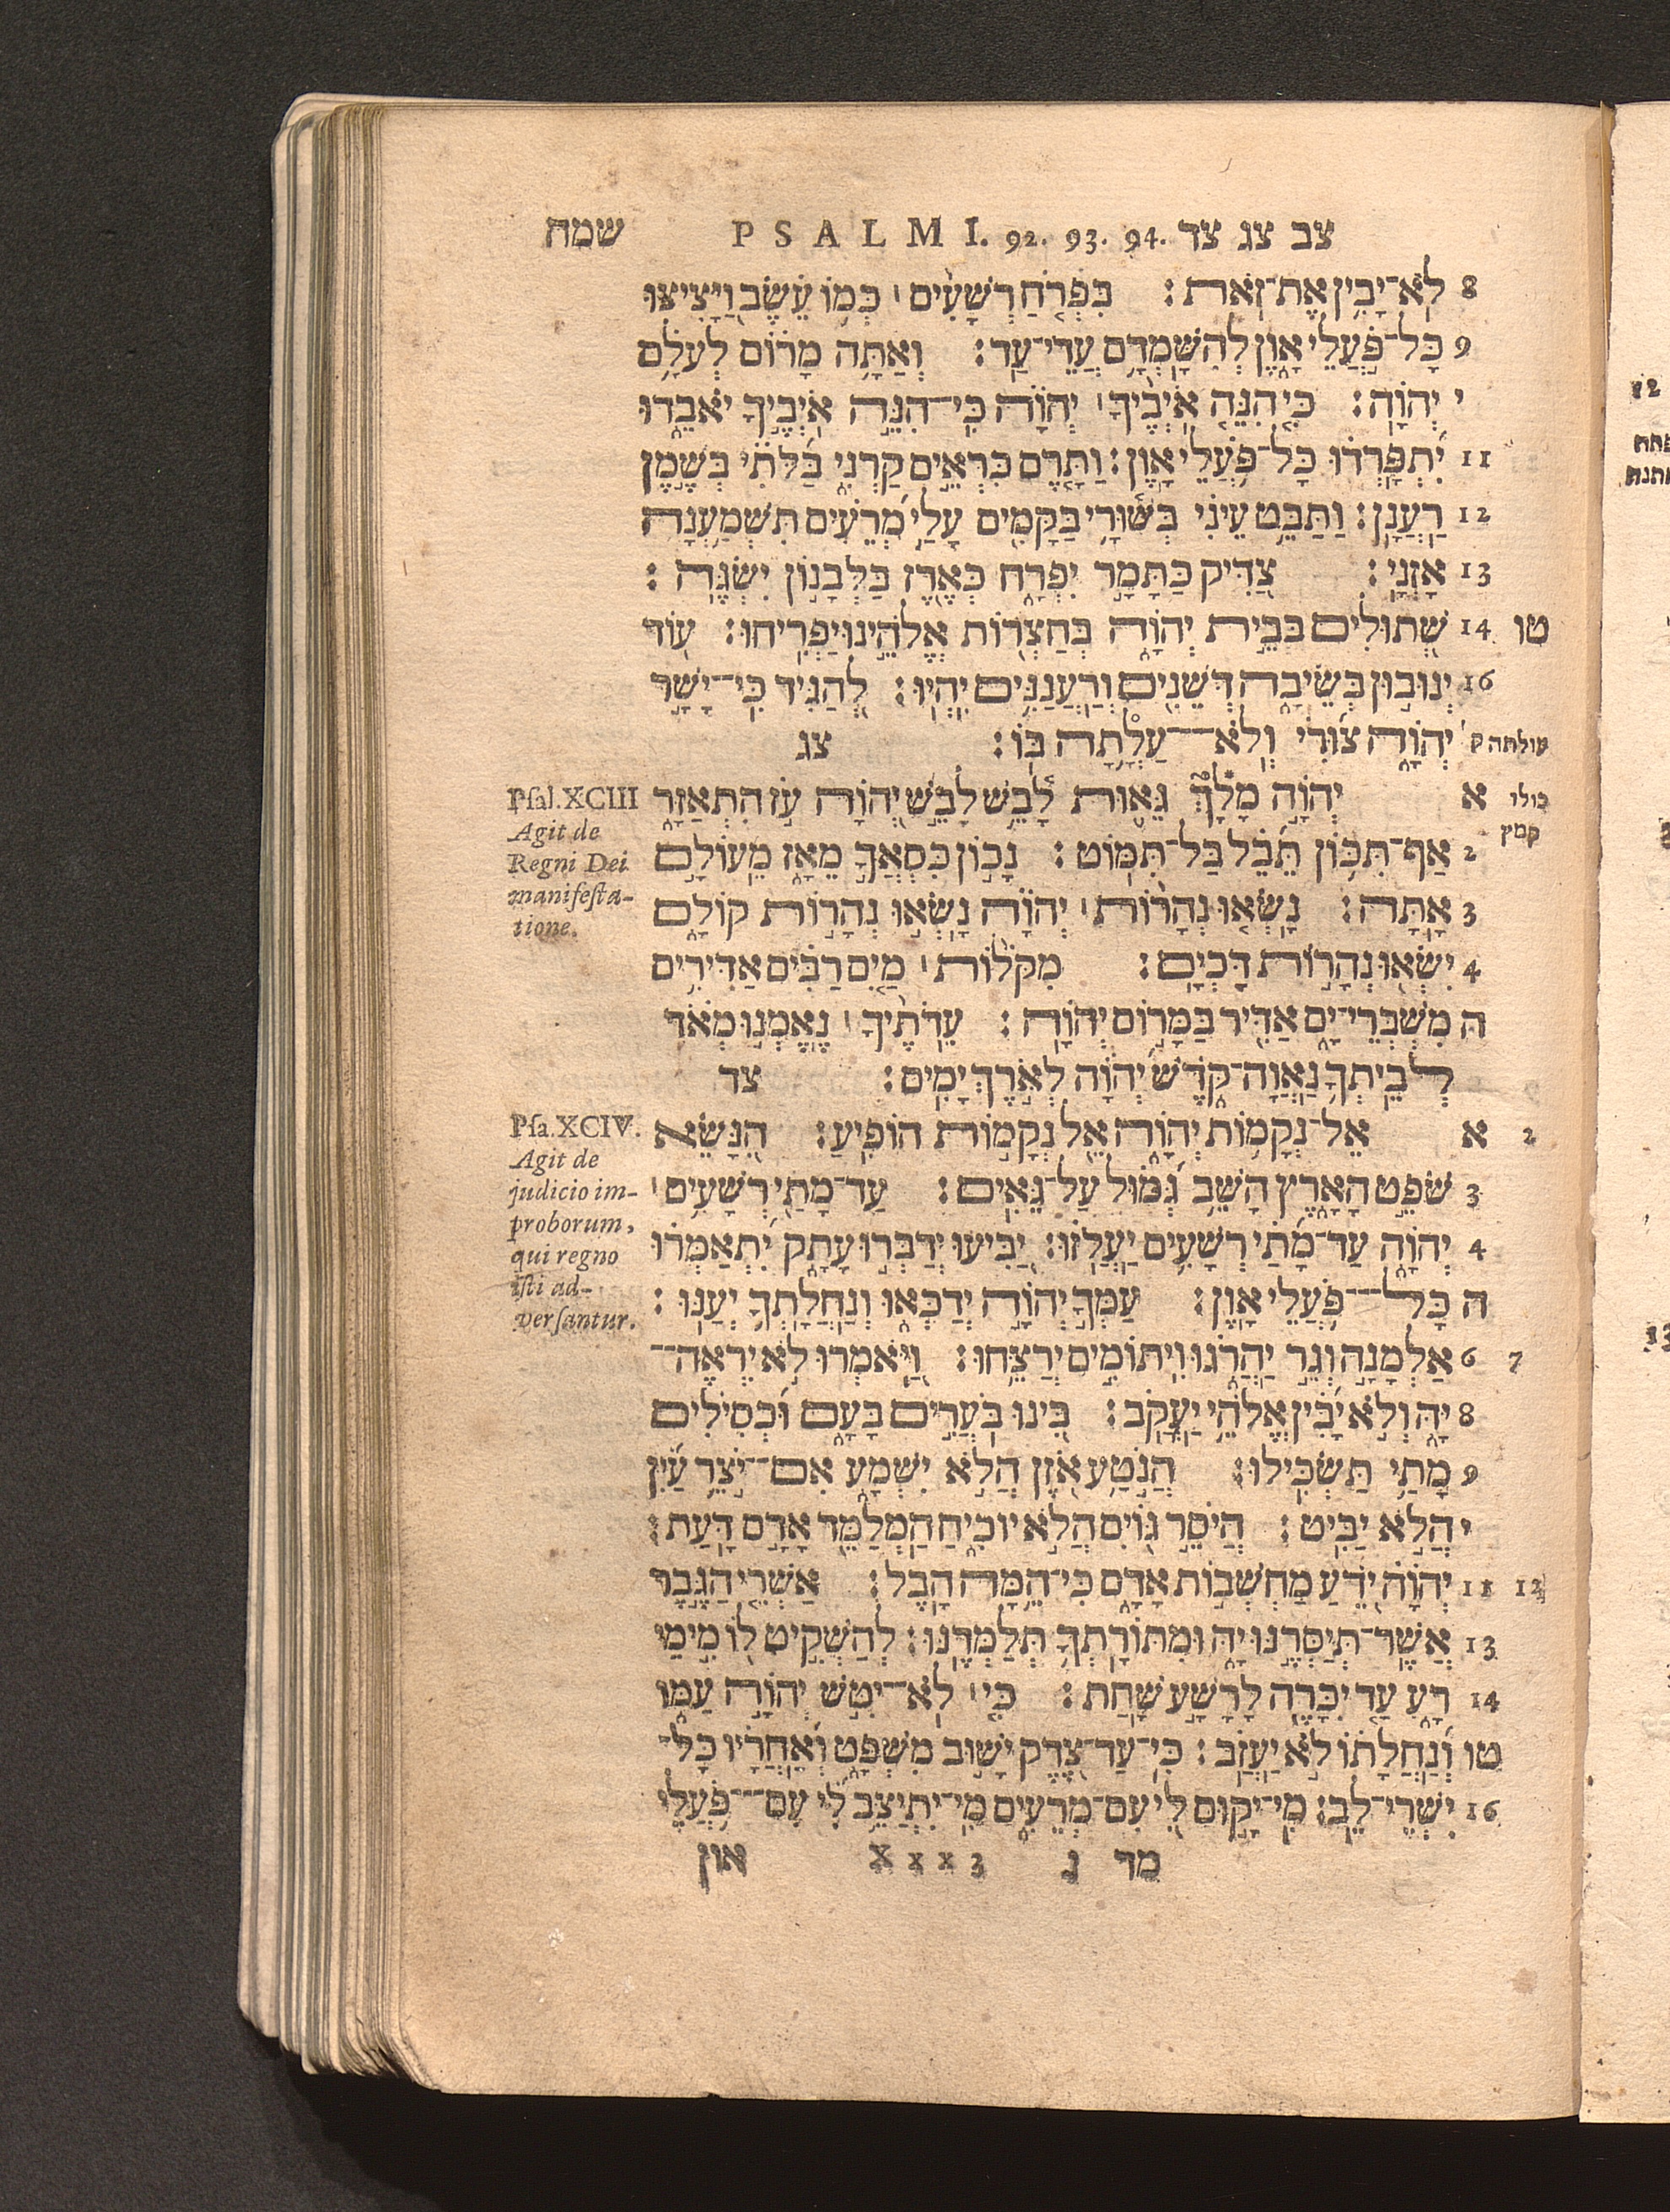 צב צג צד PSALMI. 92. 93. 94. שמח
8 לֹא־יָבִין אֶת־זֹאת׃ בִּפְרֹחַ רְשָׁעִים ׀ כְּמוֹ עֵשֶׂב וַיָּצִיצוּ
9 כָּל־פֹּעֲלֵי אָוֶן לְהִשָּׁמְדָם עֲדֵי־עַד׃ וְאַתָּה מָרוֹם לְעֹלָם
י יְהוָה׃ כִּי הִנֵּה אֹיְבֶיךָ ׀ יְהוָה כִּי־הִנֵּה אֹיְבֶיךָ יֹאבֵדוּ
11 יִתְפָּרְדוּ כָּל־פֹּעֲלֵי אָוֶן׃ וַתָּרֶם כִּרְאֵים קַרְנִי בַּלֹּתִי בְּשֶׁמֶן
12 רַעֲנָן׃ וַתַּבֵּט עֵינִי בְּשׁוּרָי בַּקָּמִים עָלַי מְרֵעִים תִּשְׁמַעְנָה
13 אָזְנָי׃ צַדִּיק כַּתָּמָר יִפְרָח כְּאֶרֶז בַּלְּבָנוֹן יִשְׂגֶּה׃
טו 14 שְׁתוּלִים בְּבֵית יְהוָה בְּחַצְרוֹת אֱלֹהֵינוּ יַפְרִיחוּ׃ עוֹד
16 יְנוּבוּן בְּשֵׂיבָה דְּשֵׁנִים וְרַעֲנַנִּים יִהְיוּ׃ לְהַגִּיד כִּי־יָשָׁר
עולתה ק יְהוָה צוּרִי וְלֹא־עַלָתָה בּוֹ׃ צג
כולו קמץ
א יְהוָה מָלָךְ גֵּאוּת לָבֵשׁ לָבֵשׁ יְהוָה עֹז הִתְאַזָּר
2 אַף־תִּכּוֹן תֵּבֵל בַּל־תִּמּוֹט׃ נָכוֹן כִּסְאֲךָ מֵאָז מֵעוֹלָם
3 אָתָּה׃ נָשְׂאוּ נְהָרוֹת ׀ יְהוָה נָשְׂאוּ נְהָרוֹת קוֹלָם
4 יִשְׂאוּ נְהָרוֹת דָּכְיָם׃ מִקֹּלוֹת ׀ מַיִם רַבִּים אַדִּירִים
ה מִשְׁבְּרֵי־יָם אַדִּיר בַּמָּרוֹם יְהוָה׃ עֵדֹתֶיךָ ׀ נֶאֶמְנוּ מְאֹד
לְבֵיתְךָ נַאֲוָה־קֹדֶשׁ יְהוָה לְאֹרֶךְ יָמִים׃ צד
2 א אֵל־נְקָמוֹת יְהוָה אֵל נְקָמוֹת הוֹפִיעַ׃ הִנָּשֵׂא
3 שֹׁפֵט הָאָרֶץ הָשֵׁב גְּמוּל עַל־גֵּאִים׃ עַד־מָתַי רְשָׁעִים ׀
4 יְהוָה עַד־מָתַי רְשָׁעִים יַעֲלֹזוּ׃ יַבִּיעוּ יְדַבְּרוּ עָתָק יִתְאַמְּרוּ
ה כָּל־פֹּעֲלֵי אָוֶן׃ עַמְּךָ יְהוָה יְדַכְּאוּ וְנַחֲלָתְךָ יְעַנּוּ׃
7 6 אַלְמָנָה וְגֵר יַהֲרֹגוּ וִיתוֹמִים יְרַצֵּחוּ׃ וַיֹּאמְרוּ לֹא יִרְאֶה־
8 יָּהּ וְלֹא יָבִין אֱלֹהֵי יַעֲקֹב׃ בִּינוּ בֹּעֲרִים בָּעָם וּכְסִילִים
9 מָתַי תַּשְׂכִּילוּ׃ הֲנֹטַע אֹזֶן הֲלֹא יִשְׁמָע אִם־יֹצֵר עַיִן
י הֲלֹא יַבִּיט׃ הֲיֹסֵר גּוֹיִם הֲלֹא יוֹכִיחַ הַמְלַמֵּד אָדָם דָּעַת׃
12 11 יְהוָה יֹדֵעַ מַחְשְׁבוֹת אָדָם כִּי־הֵמָּה הָבֶל׃ אַשְׁרֵי הַגֶּבֶר
13 אֲשֶׁר־תְּיַסְּרֶנּוּ יָּהּ וּמִתּוֹרָתְךָ תְלַמְּדֶנּוּ׃ לְהַשְׁקִיט לוֹ מִימֵי
14 רָע עַד יִכָּרֶה לָרָשָׁע שָׁחַת׃ כִּי ׀ לֹא־יִטֹּשׁ יְהוָה עַמּוֹ
טו וְנַחֲלָתוֹ לֹא יַעֲזֹב׃ כִּי־עַד־צֶדֶק יָשׁוּב מִשְׁפָּט וְאַחֲרָיו כָּל־
16 יִשְׁרֵי־לֵב׃ מִי־יָקוּם לִי עִם־מְרֵעִים מִי־יִתְיַצֵּב לִי עִם־פֹּעֲלֵי
מד נ Xxx3 און
Psal. XCIII
Agit de
Regni Dei
manifesta-
tione.
Psa. XCIV.
Agit de
judicio im-
proborum,
qui regno
isti ad-
versantur.
12
13